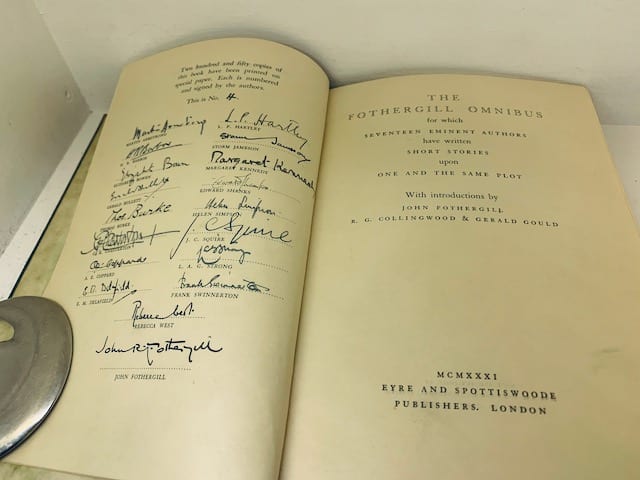 Two hundred and fifty copies of
this book have been printed on
special paper. Each is numbered
and signed by the authors.
This is No. 4.
Martin Armstrong
MARTIN ARMSTRONG
Elizabeth Bowen
ELIZABETH BOWEN
Gerald Bullett
GERALD BULLETT
Thos Burke
THOMAS BURKE
A. E. Coppard
A. E. COPPARD
E. M. Delafield
E. M. DELAFIELD
L. P. Hartley
L. P. HARTLEY
Storm Jameson
STORM JAMESON
Margaret Kennedy
MARGARET KENNEDY
Edward Shanks
EDWARD SHANKS
Helen Simpson
HELEN SIMPSON
J. C. Squire
J. C. SQUIRE
L. A. G. STRONG
Frank Swinnerton
FRANK SWINNERTON
Rebecca West
REBECCA WEST
John R. Fothergill
JOHN FOTHERGILL
THE
FOTHERGILL OMNIBUS
for which
SEVENTEEN EMINENT AUTHORS
have written
SHORT STORIES
upon
ONE AND THE SAME PLOT
With introductions by
JOHN FOTHERGILL
R. G. COLLINGWOOD & GERALD GOULD
MCMXXXI
EYRE AND SPOTTISWOODE
PUBLISHERS, LONDON